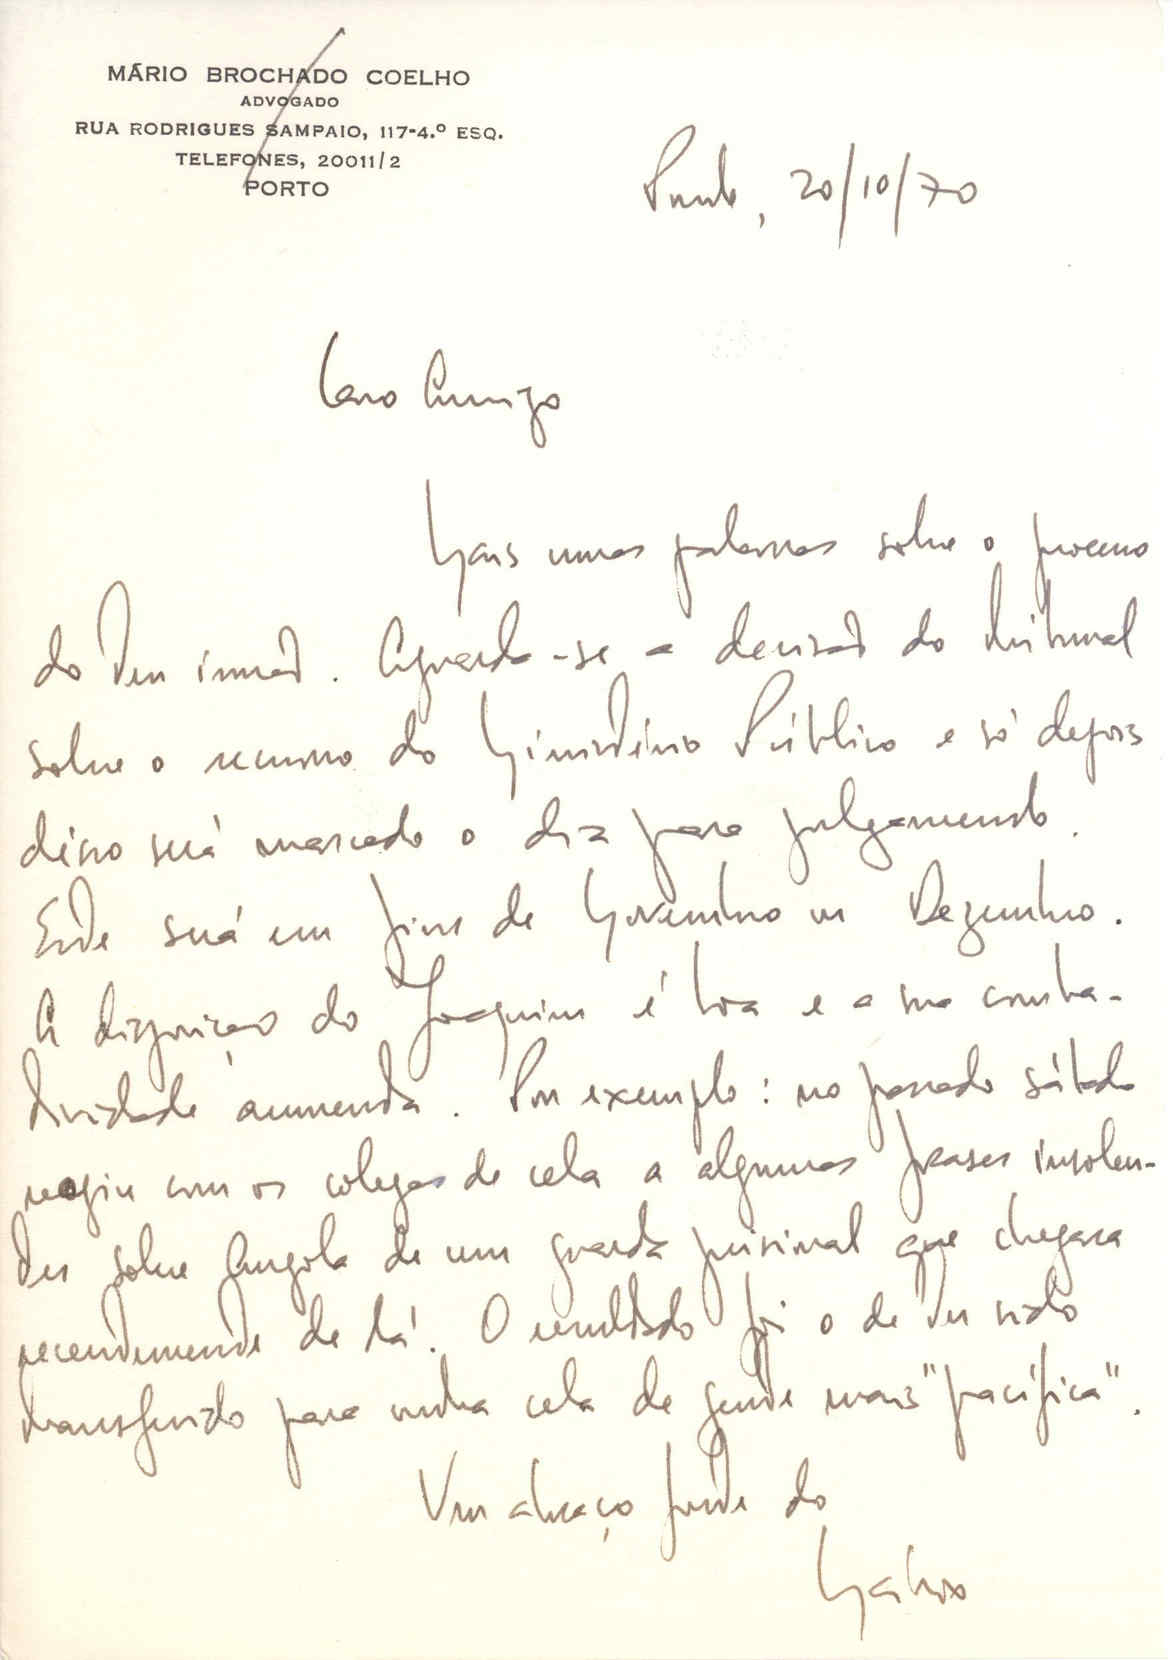 MÁRIO BROCHADO COELHO
ADVOGADO
RUA RODRIGUES SAMPAIO, 117-4.º ESQ.
TELEFONES, 20011/2
PORTO
Porto, 20/10/70
Caro Amigo
Mais umas palavras sobre o processo
do seu irmão. Aguarda-se a decisão do tribunal
sobre o recurso do Ministério Público e só depois
disso será marcado o dia para julgamento.
Este será em fins de Novembro ou Dezembro.
A disposição do Joaquim é boa e a sua comba-
tividade aumenta. Por exemplo: no passado sábado
reagiu com os colegas de cela a algumas frases insolen-
tes sobre Angola de um guarda prisional que chegara
recentemente de lá. O resultado foi o de ter sido
transferido para outra cela de gente mais "pacífica".
Um abraço forte do
Mário